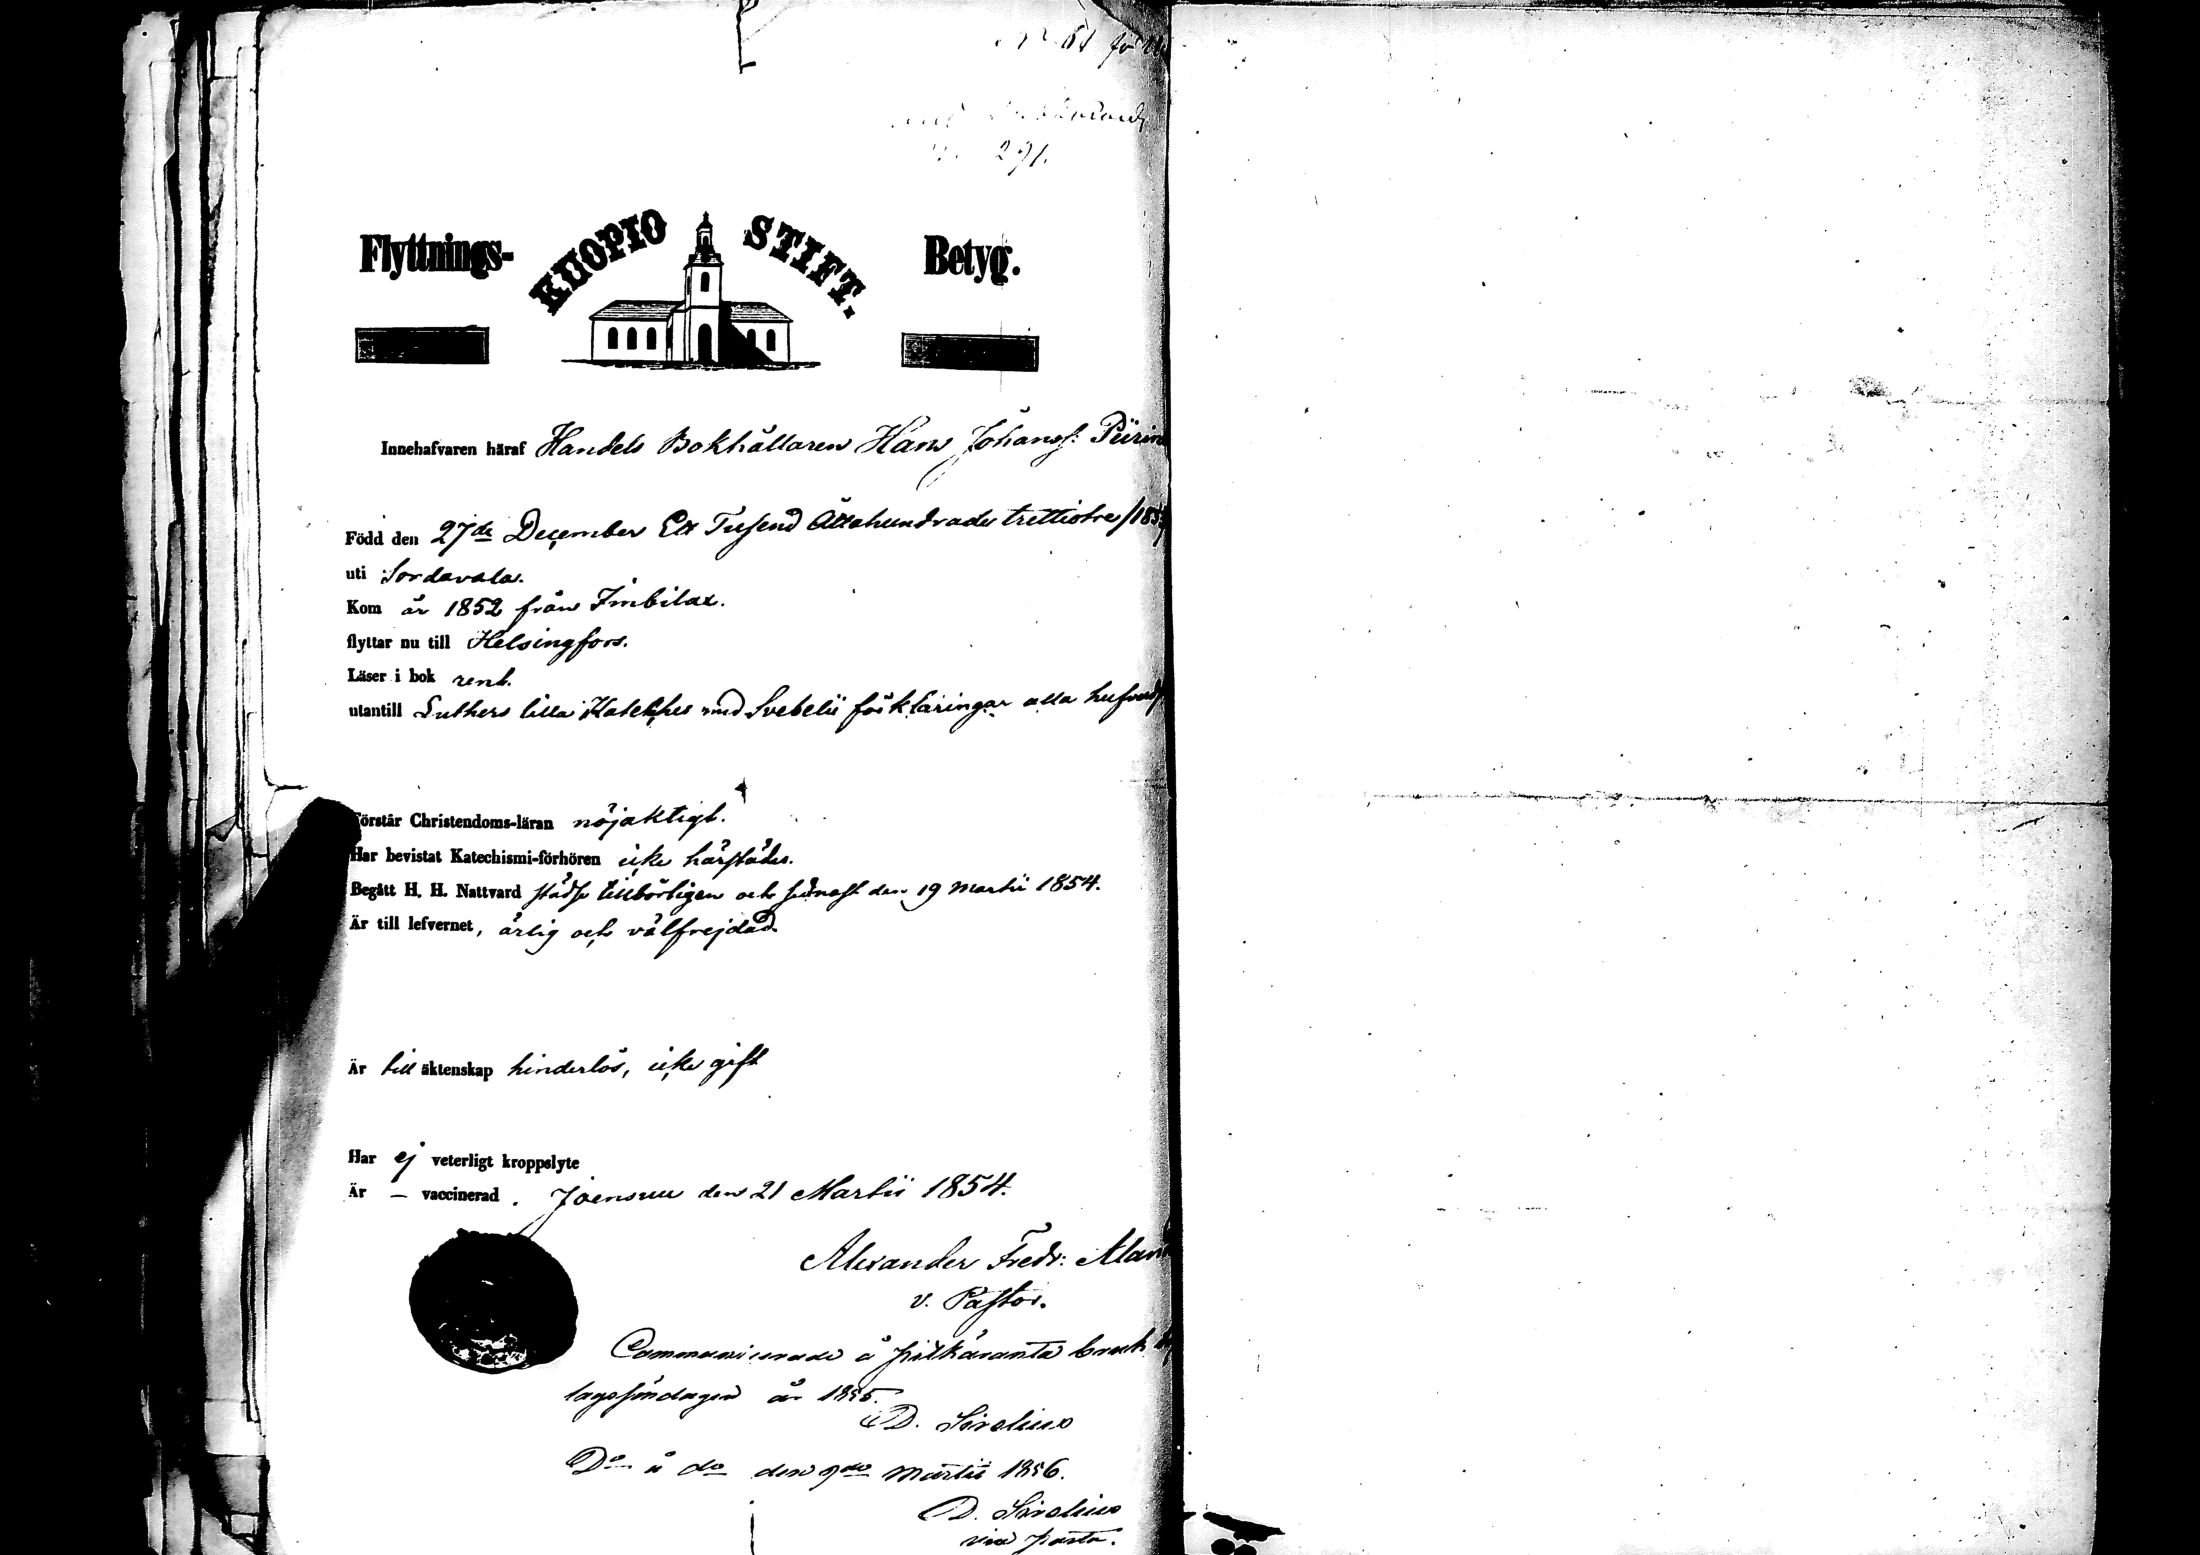 61 för
291.
Flyttnings- KUOPIO STIFT. Betyg.
Innehafvaren häraf Handels Bokhållaren Hans Johanss: Piirin
Född den 27de December Ett Tusend Åttahundrade trettiotre /183
uti Sordavala.
Kom år 1852 från Imbilax.
flyttar nu till Helsingfors.
Läser i bok rent.
utantill Luthers lilla Kateches med Svebelii förklaringar alla hufvud
Förstår Christendoms-läran nöjaktigt.
Har bevistat Katechismi-förhören icke härstädes.
Begått H. H. Nattvard städse tillbörligen och sednast den 19 Martii 1854.
Är till lefvernet, ärlig och välfrejdad.
Är till äktenskap hinderlös, icke gift
Har ej veterligt kroppslyte
Är – vaccinerad. Joensuu den 21 Martii 1854.
Alexander Fredr: Alan
v. Pastor.
Communicerade å Pitkäranta bruk
tagssöndagen år 1855.
D. Sirelius
Do å do den 9de Martii 1856.
D. Sirelius
vice pastor.